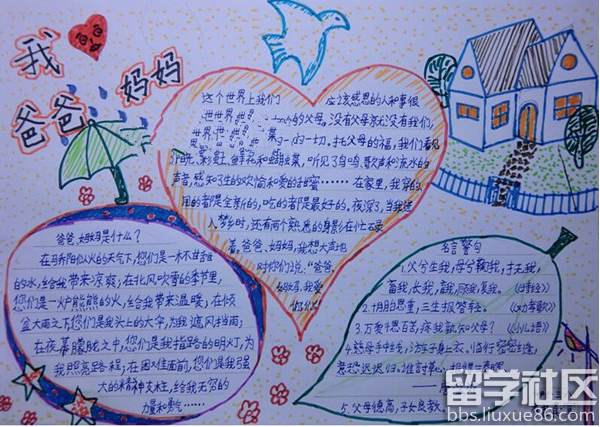 我❤爸爸妈妈
这个世界上我们 应该感恩的人和事很
的父母。没有父母就没有我们,
世界 一切,托父母的福,我们看见
彩虹、鲜花和蝴蝶,听见了鸟鸣、歌声和流水的
声音,感知了生的欢愉和爱的甜蜜……在家里,我穿的
用的都是全新的,吃的都是最好的,夜深了,当我进
入梦乡时,还有两个熟悉的身影在忙云妾
着。爸爸、妈妈,我想大声地
对你们说:“爸爸、
妈妈,我爱
你们!”
爸爸、妈妈是什么?
在骄阳似火的天气下,您们是一杯不甘甜
的水,给我带来凉爽;在北风吹雪的季节里,
您们是一炉熊熊的火,给我带来温暖;在倾
盆大雨之下,您们是我头上的大伞,为我遮风挡雨;
在夜幕朦胧之中,您们是我指路的明灯,为
我照亮路程;在困难面前,您们是我强
大的精神支柱,给我无穷的
力量和勇气……
名言警句
1.父兮生我,母兮鞠我,抚我,
畜我,长我,育我,顾我,复我。《诗经》
2.十月胎恩重,三生报答轻。《劝孝歌》
3.万爱千恩百苦,疼我孰知父母?《小儿语》
4.慈母手中线,游子身上衣。临行密密缝,
意恐迟迟归。
5.父母德高,子女良教。
留学社区
bbs.liuxue86.com